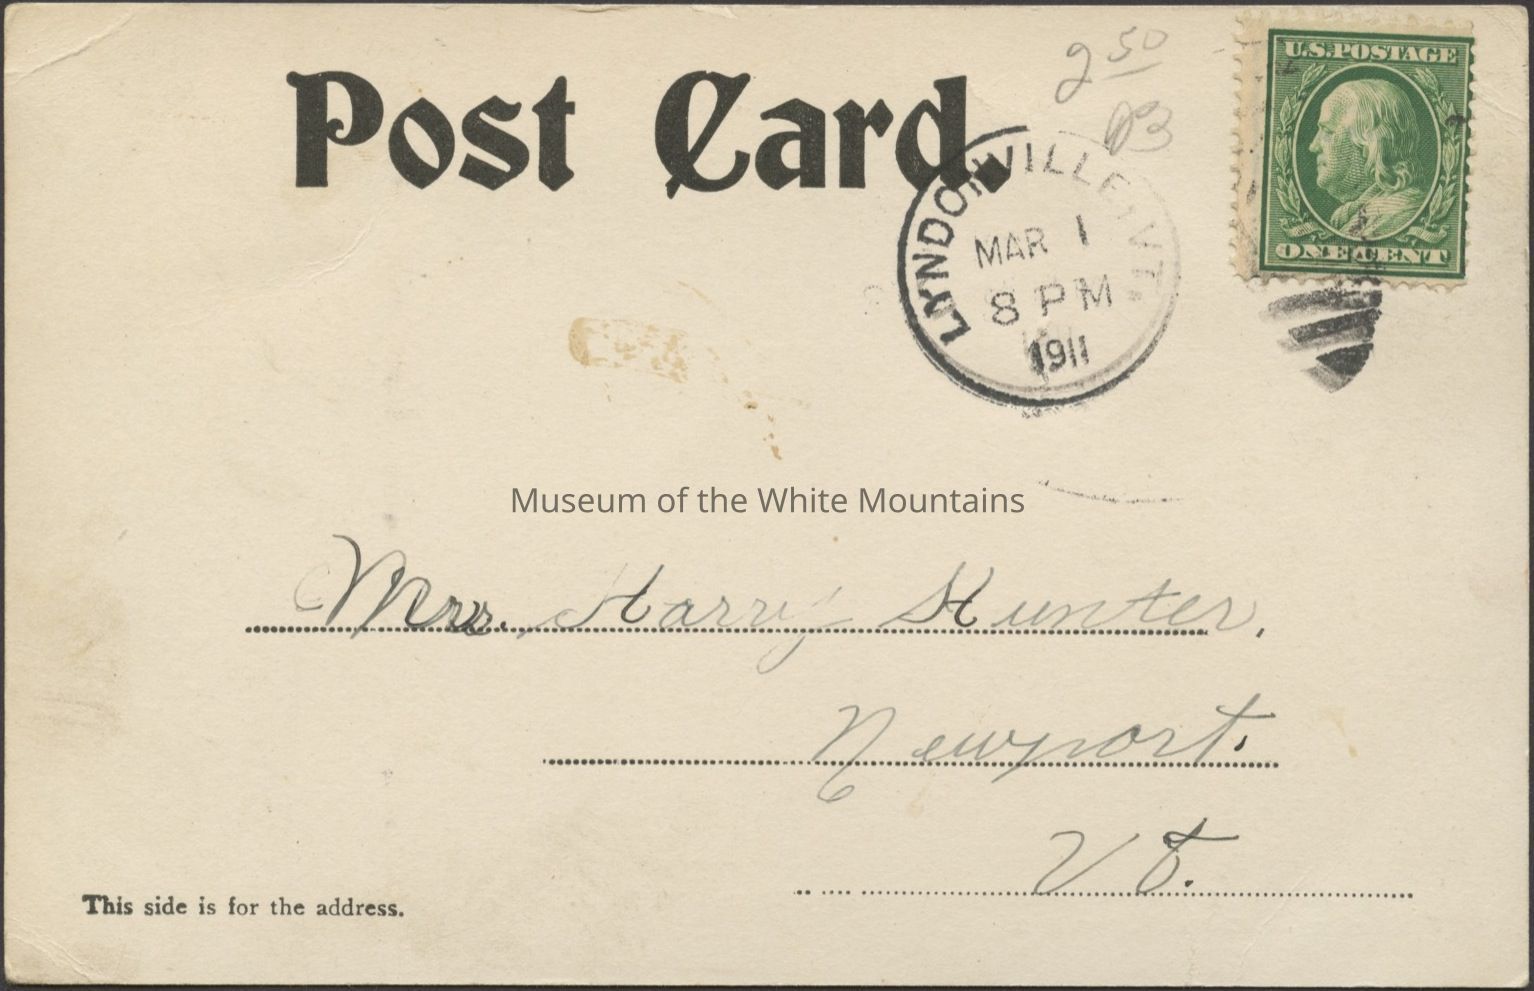 Post Card.
2 50
U.S. POSTAGE
ONE CENT
LYNDONVILLE, VT.
MAR 1
8 PM
1911
Museum of the White Mountains
Mrs. Harry Hunter,
Newport.
Vt.
This side is for the address.